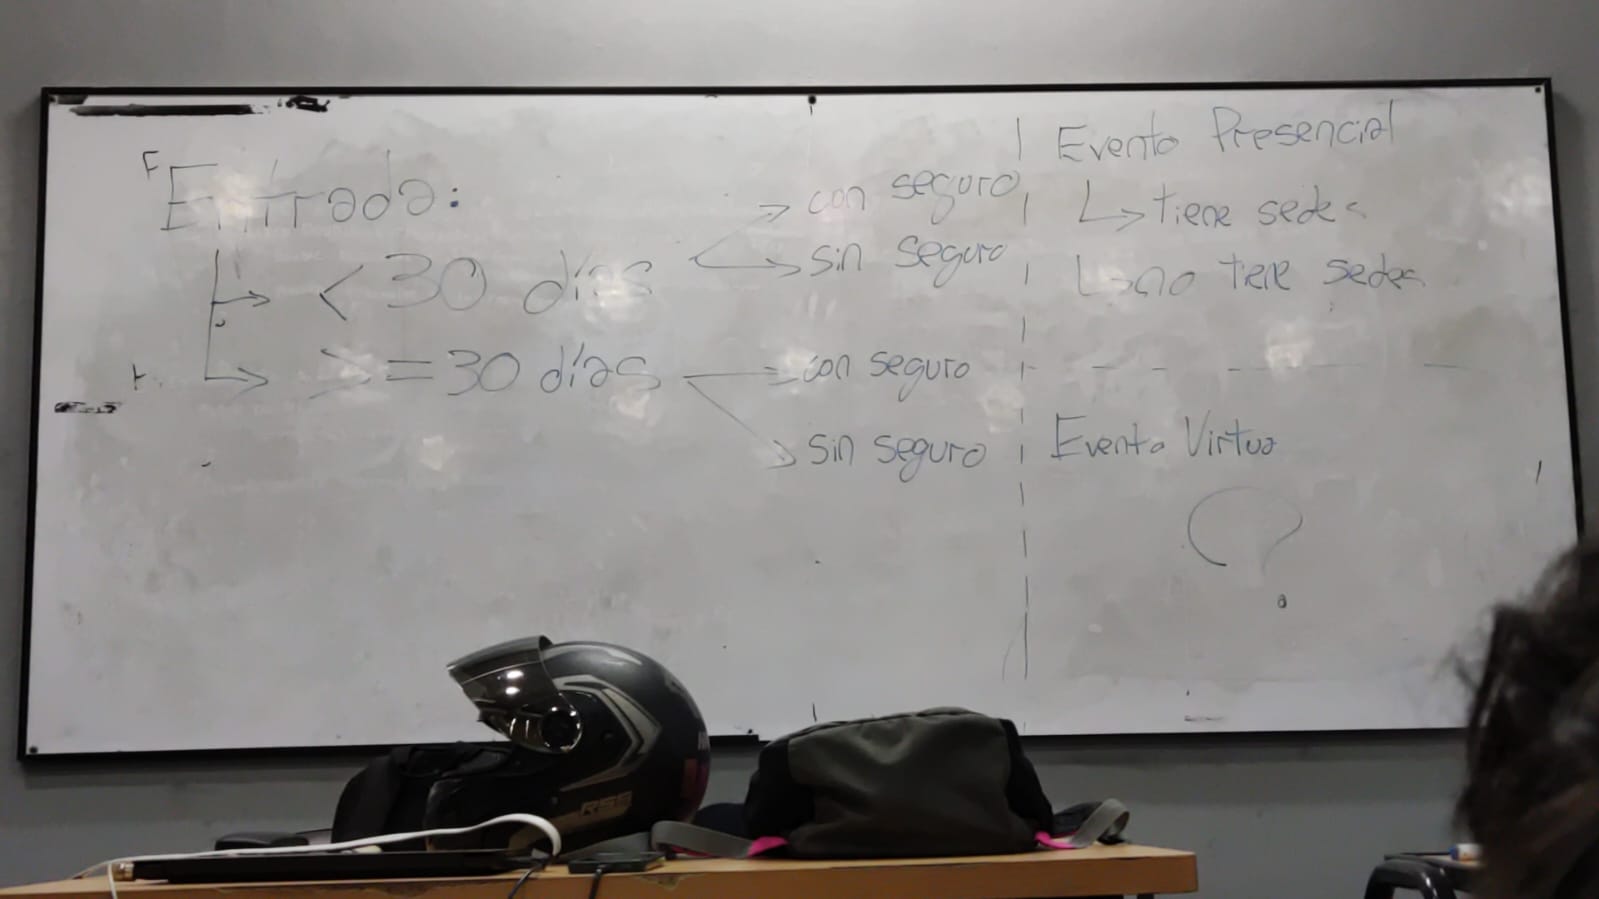 Entrada:
< 30 días
con seguro
sin seguro
>= 30 días
con seguro
sin seguro
Evento Presencial
tiene sedes
no tiene sedes
Evento Virtua
?
RSS